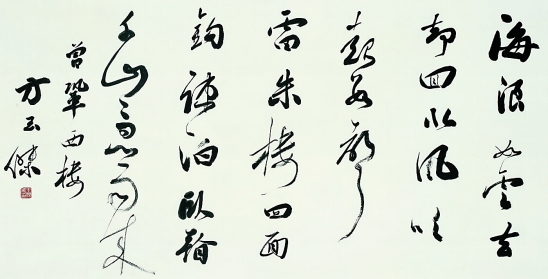 海浪如雲去
却回北風吹
起數聲
雷朱樓四面
鈎疏泊臥看
千山急雨來
曾鞏西樓
方玉傑